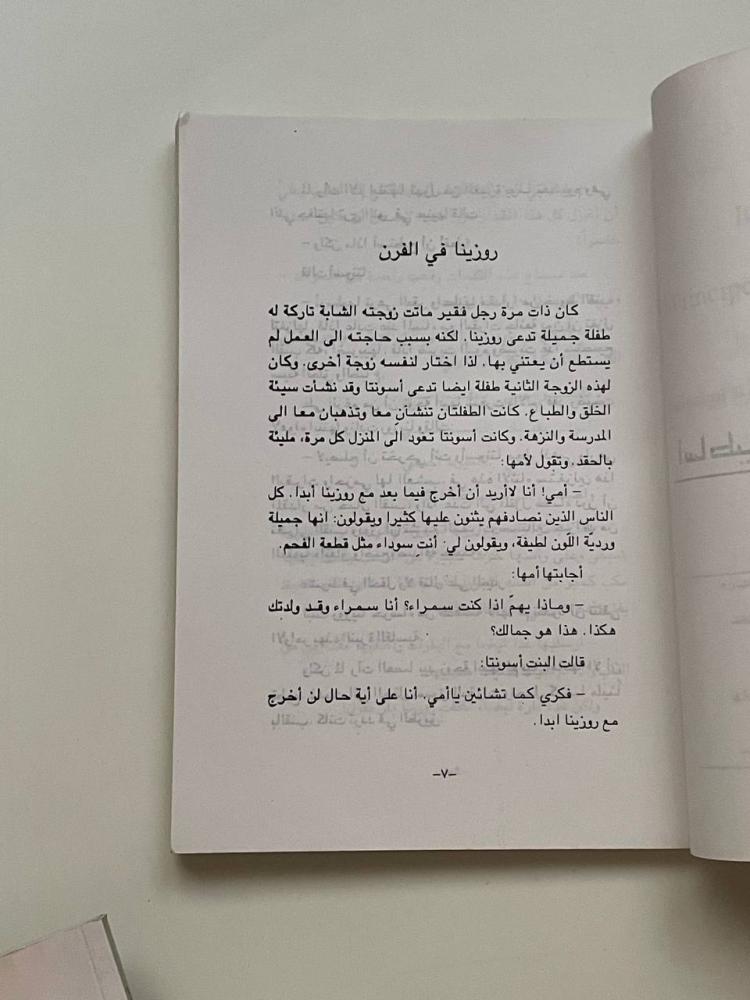 روزينا في الفرن
كان ذات مرة رجل فقير ماتت زوجته الشابة تاركة له
طفلة جميلة تدعى روزينا. لكنه بسبب حاجته الى العمل لم
يستطع أن يعتني بها. لذا اختار لنفسه زوجة أخرى. وكان
لهذه الزوجة الثانية طفلة ايضا تدعى أسونتا وقد نشأت سيئة
الخلق والطباع. كانت الطفلتان تنشأن معا وتذهبان معا الى
المدرسة والنزهة. وكانت أسونتا تعود الى المنزل كل مرة، مليئة
بالحقد. وتقول لأمها:
– أمي! أنا لاأريد أن أخرج فيما بعد مع روزينا أبدا. كل
الناس الذين نصادفهم يثنون عليها كثيرا ويقولون: انها جميلة
ورديّة اللّون لطيفة، ويقولون لي: أنتِ سوداء مثل قطعة الفحم.
أجابتها أمها:
– وماذا يهمّ اذا كنت سمراء؟ أنا سمراء وقد ولدتك
هكذا. هذا هو جمالك؟
قالت البنت أسونتا:
– فكري كما تشائين ياأمي. أنا على أية حال لن أخرج
مع روزينا ابدا.
–٧–